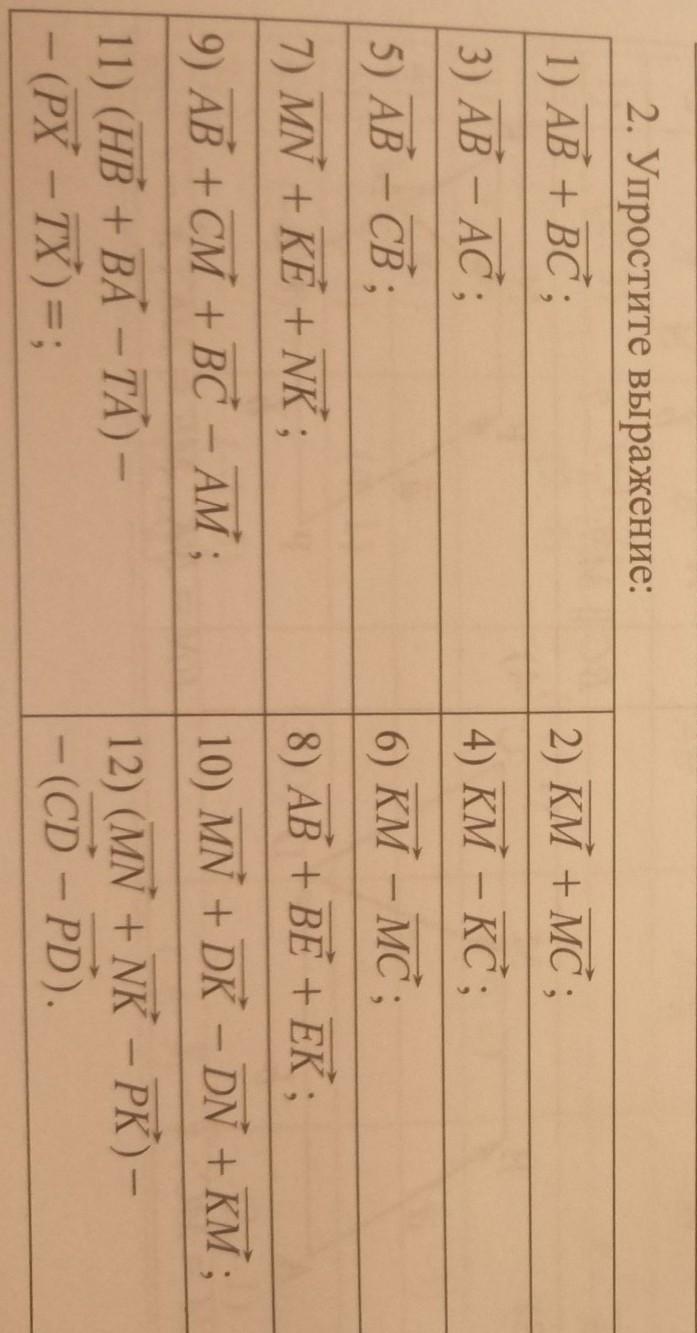 2. Упростите выражение:
1) \overrightarrow{AB} + \overrightarrow{BC};
2) \overrightarrow{KM} + \overrightarrow{MC};
3) \overrightarrow{AB} − \overrightarrow{AC};
4) \overrightarrow{KM} − \overrightarrow{KC};
5) \overrightarrow{AB} − \overrightarrow{CB};
6) \overrightarrow{KM} − \overrightarrow{MC};
7) \overrightarrow{MN} + \overrightarrow{KE} + \overrightarrow{NK};
8) \overrightarrow{AB} + \overrightarrow{BE} + \overrightarrow{EK};
9) \overrightarrow{AB} + \overrightarrow{CM} + \overrightarrow{BC} − \overrightarrow{AM};
10) \overrightarrow{MN} + \overrightarrow{DK} − \overrightarrow{DN} + \overrightarrow{KM};
11) (\overrightarrow{HB} + \overrightarrow{BA} − \overrightarrow{TA}) −
− (\overrightarrow{PX} − \overrightarrow{TX}) =;
12) (\overrightarrow{MN} + \overrightarrow{NK} − \overrightarrow{PK}) −
− (\overrightarrow{CD} − \overrightarrow{PD}).